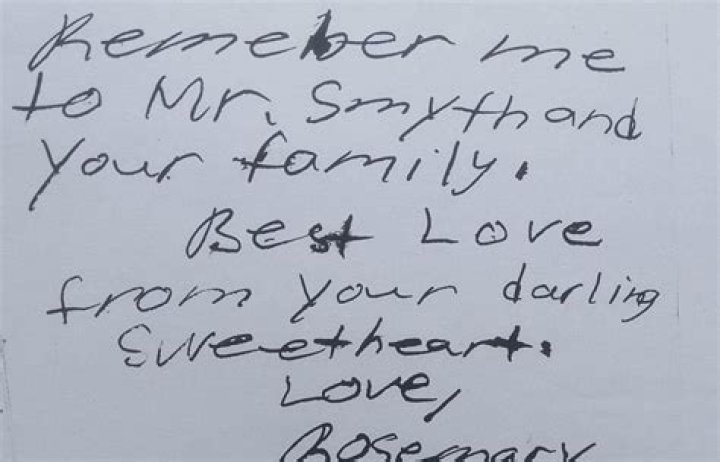 Remeber me
to Mr. Smyth and
your family.
Best Love
from your darling
Sweetheart.
Love,
Rosemary